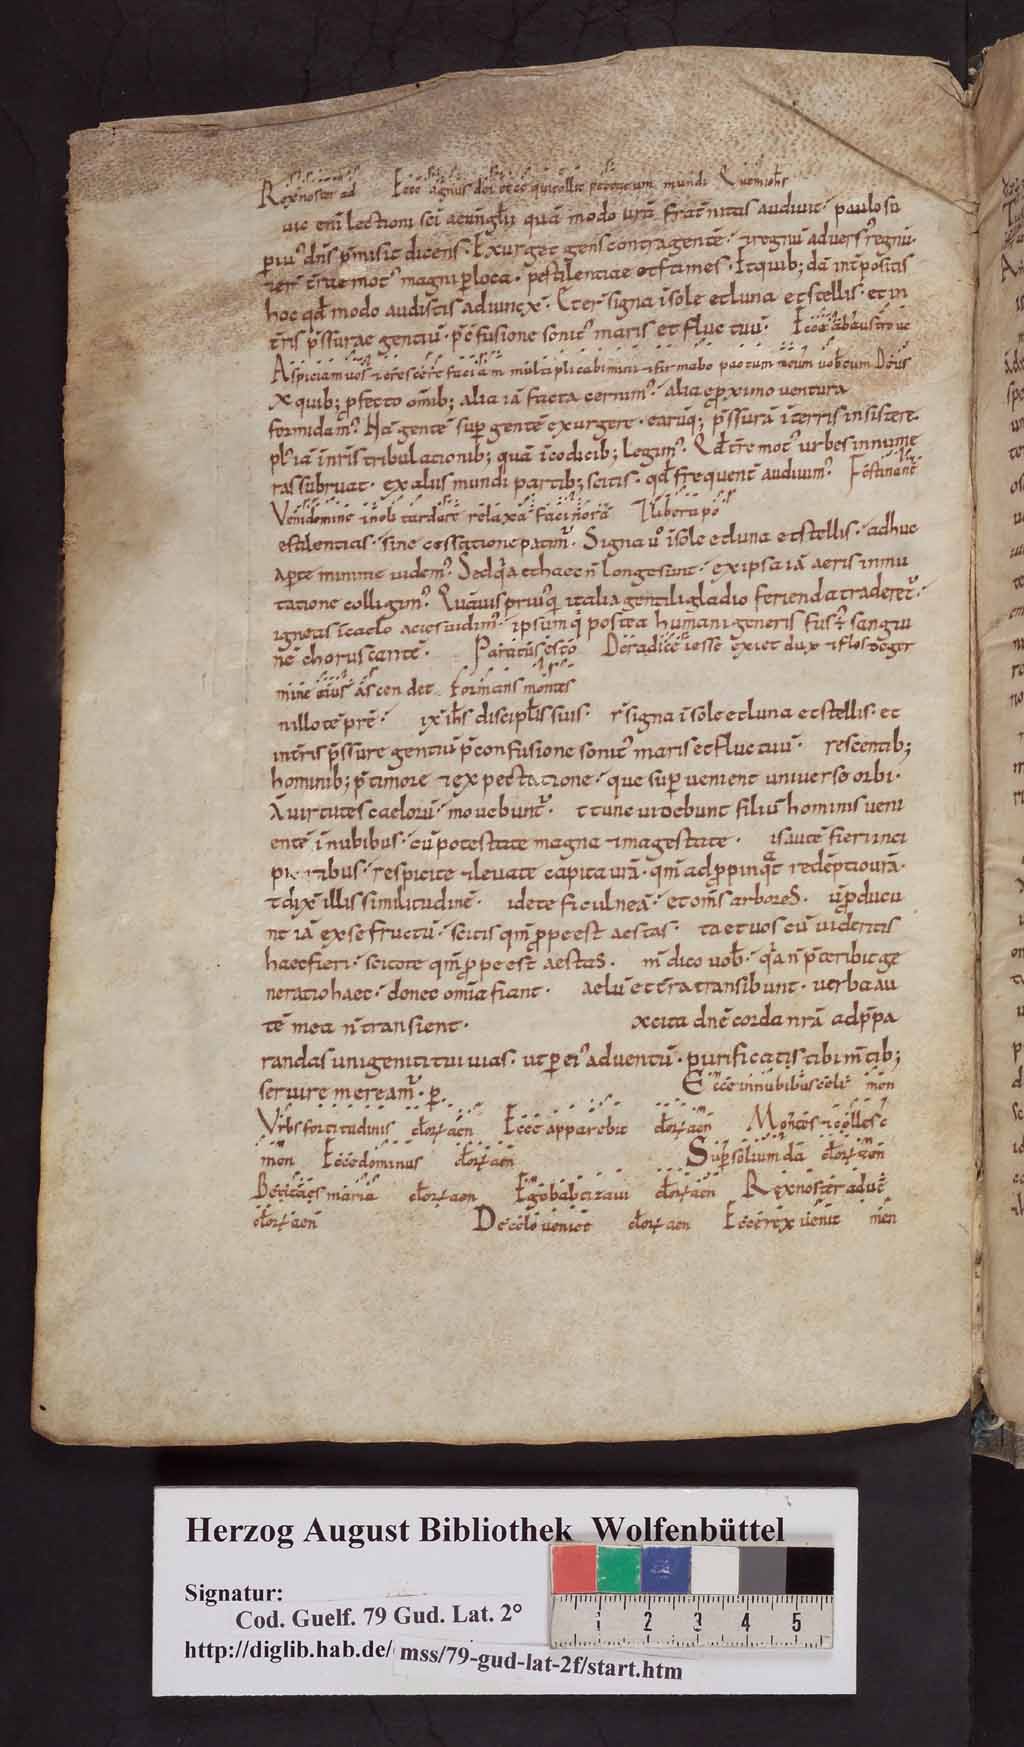 Rex noster ad Ecce agnus dei ecce qui tollit peccatum mundi Quem ioh̄s
uic enī lectioni sc̄i aeuangl̄ii quā modo ur̄a frat̄nitas audiuit · paulo su
periuꝰ dn̄s p̄misit dicens · Exurget gens contra gentē · ⁊ regnū aduersꝰ regnū ·
⁊ ert t̄rae motꝰ magni ꝑ loca · pestilentiae et fames · Et quib; dā int̄positis
hoc qd̄ modo audistis adiunxꝭ · Et er̄ signa ī sole et luna et stellis · et in
t̄ris p̄ssurae gentiū · p̄ c̄fusione sonitꝰ maris et fluctuū · Ecce ab austro ue
Aspiciam uos ⁊ crescere faciam multiplicabimini ⁊ firmabo pactum meum uob̄cum Donis
X quib; ꝓfecto om̄ib; alia iā facta cernimꝰ · alia e ꝓximo uentura
formidamꝰ · Nā gentē suꝑ gentē exurgere · earūq; p̄ssurā ī terris insistere ·
plꝰ iā ī nr̄is tribulationib; quā ī codicib; legimꝰ · Qd̄ t̄re motꝰ urbes innume
ras subruat · ex aliis mundi partib; scitis · qd̄ frequent̄ audiuimꝰ · Festinant̄
Veni domine ⁊ noli tardare relaxa facinora ⁊ libera po
estilentias · sine cessatione patimꝰ · Signa u͛o ī sole et luna et stellis · adhuc
aꝑte minime uidemꝰ · Sed qͣa et haec n̄ longe sunt · ex ipsa iā aeris inmu
tatione colligimꝰ · Quāuis priuꝰq̄ italia gentili gladio ferienda traderetꝰ ·
igneas ī caelo acies uidimꝰ · ipsumq̄ postea humani generis fusꝰ ē sanguī
nē choruscantē · Paratus esto De radice iesse exiet dux ⁊ flos de ger
mine eius ascendet Formans montes
n illo tēpr̄e · ixꝭ ih̄s discipl̄is suis · r̄ signa ī sole et luna et stellis · et
in t̄ris p̄ssure gentiū p̄ confusione sonitꝰ maris et fluctuū · rescentib;
hominib; p̄ timore ⁊ expectatione · que suꝑuenient uniuerso orbi ·
ā uirtutes caelorū · mouebuntꝰ · t tunc uidebunt filiū hominis ueni
entē ī nubibus · cū potestate magna ⁊ magestate · is autē fieri inci
pientibus · respicite ⁊ leuate capita ur̄a · qm̄ adꝓpinqͣt redēptio ur̄a ·
t dixꝭ illis similitudinē · idete ficulneā · et om̄s arbores · ū ꝓducu
nt iā ex se fructū · scitis qm̄ ꝓpe est aestas · ta et uos cū uideritis
haec fieri · scitote qm̄ ꝓpe est aestas · m̄ dico uob̄ · qͣa n̄ p̄teribit ge
neratio haec · donec om̄ia fiant · aelū et t̄ra transibunt · uerba au
tē mea n̄ transient · xcita dn̄e corda nr̄a ad p̄pa
randas unigeniti tui uias · ut ꝑ eiꝰ aduentū · purificatis tibi m̄tib;
seruire mereamꝰ · ꝑ · Ecce in nubibus celi men
Vrbs fortitudinis ch̄orꝭ aen Ecce apparebit ch̄orꝭ aen Montes ⁊ colles c
men Ecce dominus ch̄orꝭ aen Suꝑ solium dā ch̄orꝭ aen
Beata es maria ch̄orꝭ aen Ego baptizaui ch̄orꝭ aen Rex noster aduē
ch̄orꝭ aen De celo veniet ch̄orꝭ aen Ecce rex venit men
Herzog August Bibliothek Wolfenbüttel
Signatur:
Cod. Guelf. 79 Gud. Lat. 2°
http://diglib.hab.de/mss/79-gud-lat-2f/start.htm
1 2 3 4 5